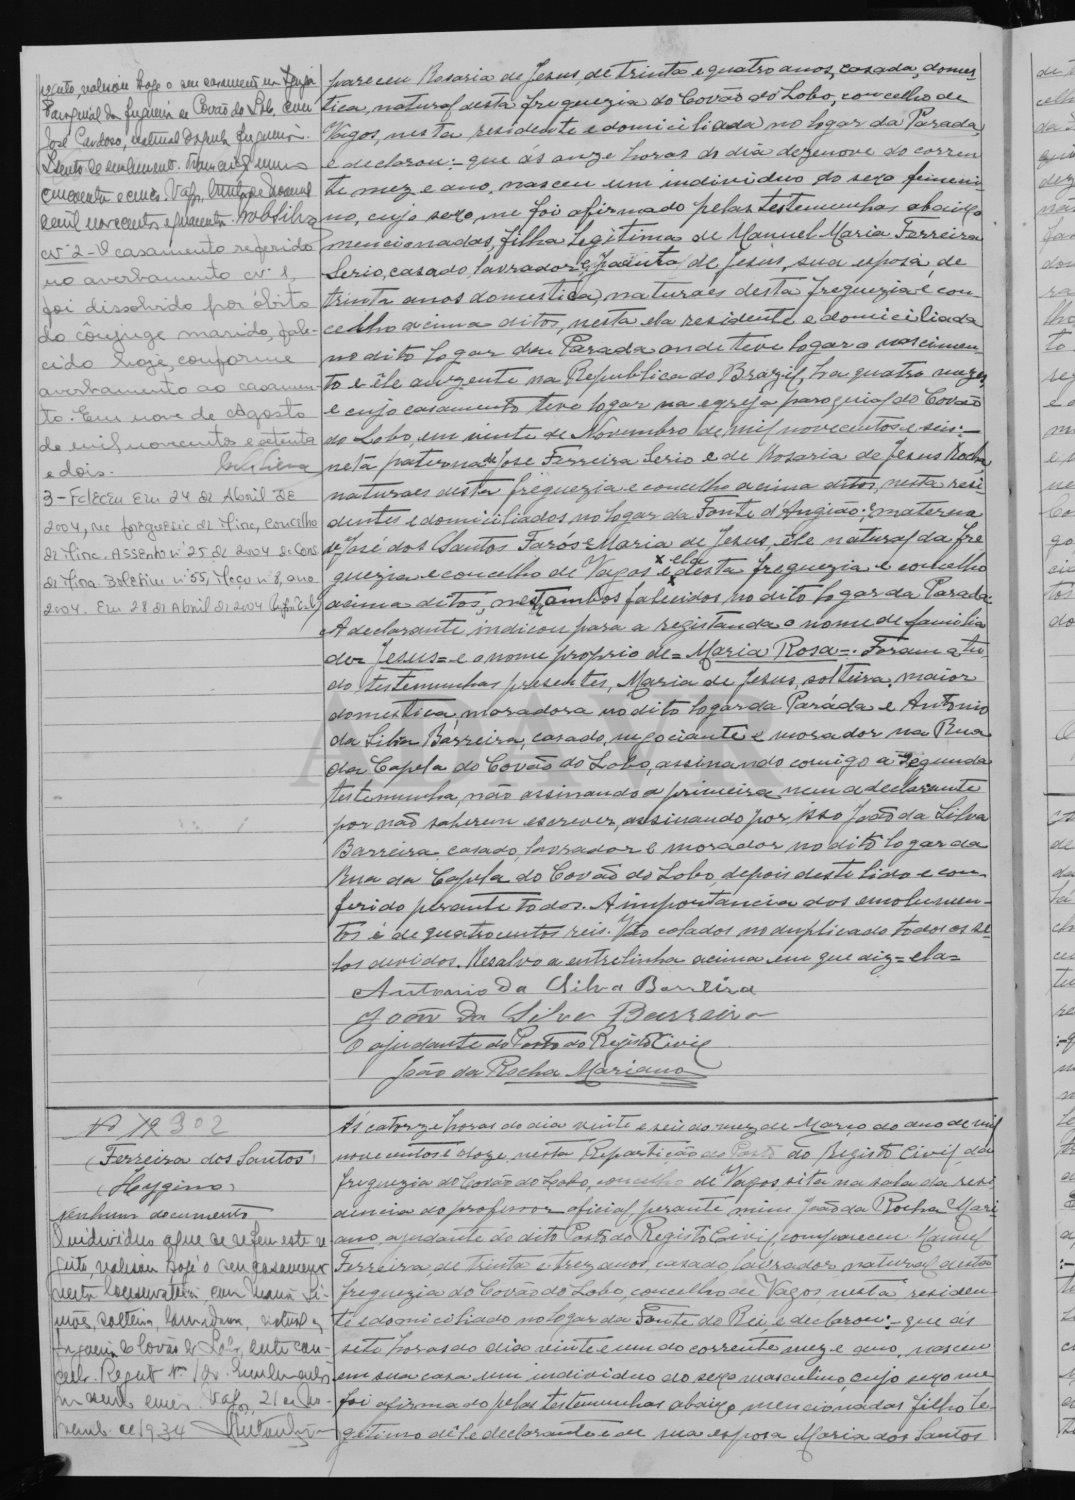 gisto, realisou hoje o seu casamento na Igreja
Paroquial da freguesia de Covão do Lobo, com
José Cardoso, natural daquela freguesia.
cincoenta e cinco. Vagos,
de mil novecentos e quarenta.
nº 2 - O casamento referido
no averbamento nº 1,
foi dissolvido por óbito
do cônjuge marido, fale-
cido hoje, conforme
averbamento ao casamen-
to. Em nove de Agosto
de mil novecentos e setenta
e dois.
3 - Faleceu em 24 de Abril de
2004, na freguesia de Mira, concelho
de Mira. Assento nº 25 de 2004 da Cons.
de Mira. Boletim nº 55, Maço nº 8, ano
2004. Em 28 de Abril de 2004
pareceu Rosaria de Jesus, de trinta e quatro anos, casada, domes-
tica, natural desta freguezia do Covão do Lobo, concelho de
Vagos, nesta residente e domiciliada no logar da Parada
e declarou:- que ás onze horas do dia dezenove do corren-
te mez e ano, nasceu um individuo do sexo femeni-
no, cujo sexo, me foi afirmado pelas testemunhas abaixo
mencionadas, filha legitima de Manuel Maria Ferreira
Serio, casado, lavrador e Jacinta de Jesus, sua esposa, de
trinta anos domestica, naturaes desta freguezia e con-
celho acima ditos, nesta ela residente e domiciliada
no dito logar da Parada onde teve logar o nascimen-
to e êle auzente na Republica do Brazil, ha quatro mezes
e cujo casamento teve logar na egreja paroquial do Covão
do Lobo, em vinte de Novembro de mil novecentos e seis:-
neta paterna de José Ferreira Serio e de Rosaria de Jesus Rocha
naturaes desta freguezia e concelho acima ditos, nesta resi-
dentes e domiciliados no logar da Fonte d'Angião; e materna
de José dos Santos Farós e Maria de Jesus, êle natural da fre
guezia e concelho de Vagos e ela desta freguezia e concelho
acima ditos, ambos falecidos no dito logar da Parada.
A declarante indicou para a registanda o nome de familia
de = Jesus = e o nome proprio de = Maria Rosa =. Foram a tu-
do testemunhas presentes, Maria de Jesus, solteira, maior
domestica, moradora no dito logar da Paráda e Antonio
da Silva Barreira, casado, negociante e morador na Rua
da Capela do Covão do Lobo, assinando comigo a segunda
testemunha, não assinando a primeira nem a declarante
por não saberem escrever, assinando por isso João da Silva
Barreira, casado, lavrador e morador no dito logar da
Rua da Capela do Covão do Lobo, depois deste lido e con
ferido perante todos. A importancia dos emolumen-
tos é de quatrocentos reis. Vão colados no duplicado todos os se-
los devidos. Resalvo a entrelinha acima em que diz = ela =
Antonio da Silva Barreira
João da Silva Barreira
O ajudante do Posto do Registo Civil
João da Rocha Mariano
Nº 12 302
(Ferreira dos Santos)
(Hygino)
Nenhum documento
O individuo a que se refere este re
gisto, realisou hoje o seu casamento
nesta Conservatoria, com
solteira, natural da
freguesia de Covão do Lobo, deste con-
celho. Registo nº
Vagos, 21 de No-
vembro de 1934
Ás catorze horas do dia vinte e seis do mez de Março do ano de mil
novecentos e doze, nesta Repartição do Posto do Registo Civil da
freguezia do Covão do Lobo, concelho de Vagos, sita na sala da resi-
dencia do professor oficial, perante mim João da Rocha Mari-
ano, ajudante do dito Posto do Registo Civil, compareceu Manuel
Ferreira, de trinta e trez anos, casado, lavrador, natural desta
freguezia do Covão do Lobo, concelho de Vagos, nesta residen-
te e domiciliado no logar da Fonte do Rei, e declarou:- que ás
sete horas do dia vinte e um do corrente mez e ano, nasceu
em sua casa um individuo do sexo masculino, cujo sexo me
foi afirmado pelas testemunhas abaixo mencionadas, filho le-
gitimo dêle declarante e de sua esposa Maria dos Santos